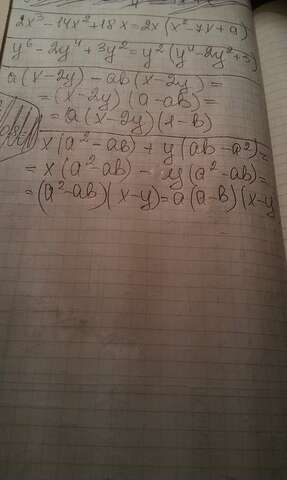 2x³ - 14x² + 18x = 2x (x² - 7x + 9)
y⁶ - 2y⁴ + 3y² = y² (y⁴ - 2y² + 3)
a (x - 2y) - ab (x - 2y) =
= (x - 2y) (a - ab) =
= a (x - 2y) (1 - b)
x (a² - ab) + y (ab - a²) =
= x (a² - ab) - y (a² - ab) =
= (a² - ab) (x - y) = a (a - b) (x - y